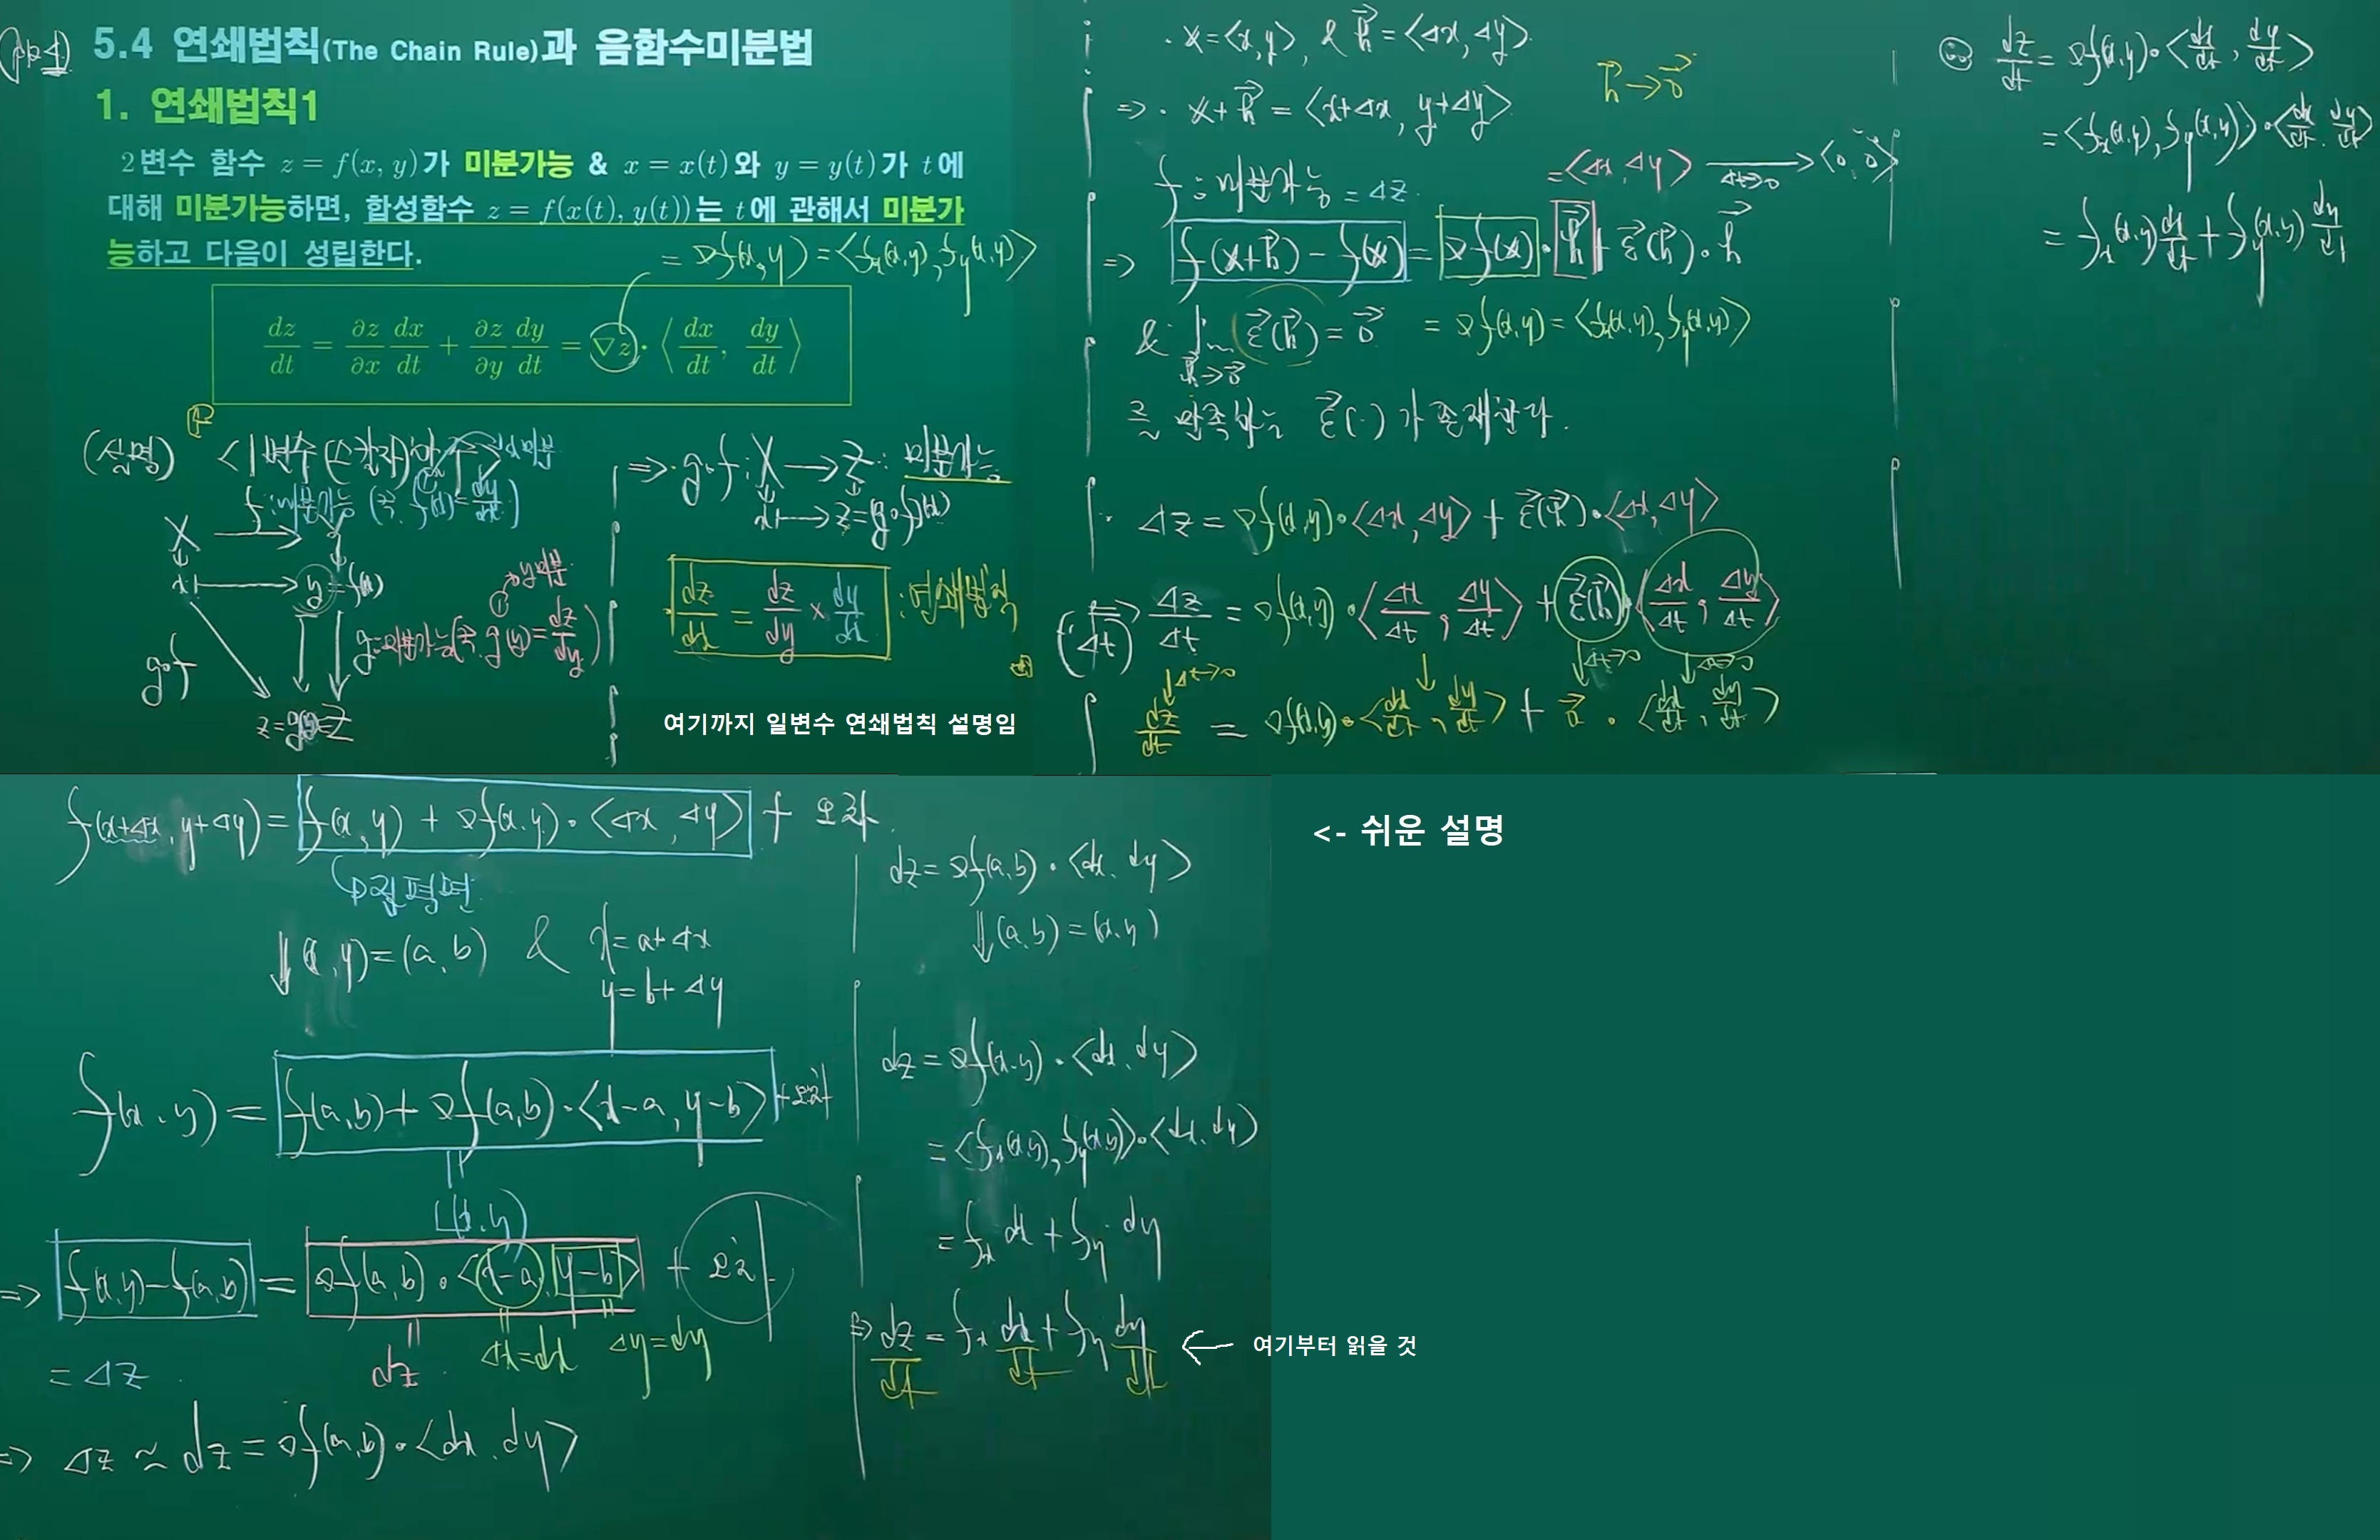 (p124) 5.4 연쇄법칙(The Chain Rule)과 음함수미분법
1. 연쇄법칙1
2변수 함수 z = f(x, y)가 미분가능 & x = x(t)와 y = y(t)가 t에
대해 미분가능하면, 합성함수 z = f(x(t), y(t))는 t에 관해서 미분가
능하고 다음이 성립한다.
= ∇f(x,y) = <f_x(x,y), f_y(x,y)>
dz/dt = ∂z/∂x dx/dt + ∂z/∂y dy/dt = ∇z · 〈dx/dt, dy/dt〉
(설명)
f : 미분가능 (즉, f'(x) = dy/dx)
X → Y
x ↦ y = f(x)
① → y미분
g : 미분가능 (즉, g'(y) = dz/dy)
g∘f
z = g(y) ∈ Z
⇒ g∘f : X → Z : 미분가능
x ↦ z = (g∘f)(x)
dz/dx = dz/dy × dy/dx : 연쇄법칙
여기까지 일변수 연쇄법칙 설명임
· x = <x, y>, & h = <Δx, Δy>
⇒ · x + h = <x+Δx, y+Δy>
h → 0
= <Δx, Δy> → <0, 0>
Δt→0
f : 미분가능 = Δz
⇒ f(x+h) − f(x) = ∇f(x) · h + ε(h) · h
& lim ε(h) = 0
h→0
= ∇f(x,y) = <f_x(x,y), f_y(x,y)>
를 만족하는 ε(·)가 존재한다.
· Δz = ∇f(x,y) · <Δx, Δy> + ε(h) · <Δx, Δy>
(÷Δt) ⇒ Δz/Δt = ∇f(x,y) · <Δx/Δt, Δy/Δt> + ε(h) · <Δx/Δt, Δy/Δt>
↓Δt→0 ↓ ↓Δt→0 ↓Δt→0
dz/dt = ∇f(x,y) · <dx/dt, dy/dt> + 0 · <dx/dt, dy/dt>
∴ dz/dt = ∇f(x,y) · <dx/dt, dy/dt>
= <f_x(x,y), f_y(x,y)> · <dx/dt, dy/dt>
= f_x(x,y) dx/dt + f_y(x,y) dy/dt
f(x+Δx, y+Δy) = f(x,y) + ∇f(x,y) · <Δx, Δy> + 오차
접평면
⇓ (x,y) = (a,b) & x = a+Δx
y = b+Δy
f(x,y) = f(a,b) + ∇f(a,b) · <x−a, y−b> + 오차
L(x,y)
⇒ f(x,y) − f(a,b) = ∇f(a,b) · <x−a, y−b> + 오차
= Δz
dz
Δx = dx Δy = dy
⇒ Δz ≈ dz = ∇f(a,b) · <dx, dy>
dz = ∇f(a,b) · <dx, dy>
⇓ (a,b) = (x,y)
dz = ∇f(x,y) · <dx, dy>
= <f_x(x,y), f_y(x,y)> · <dx, dy>
= f_x dx + f_y dy
⇒ dz/dt = f_x dx/dt + f_y dy/dt
← 여기부터 읽을 것
<- 쉬운 설명